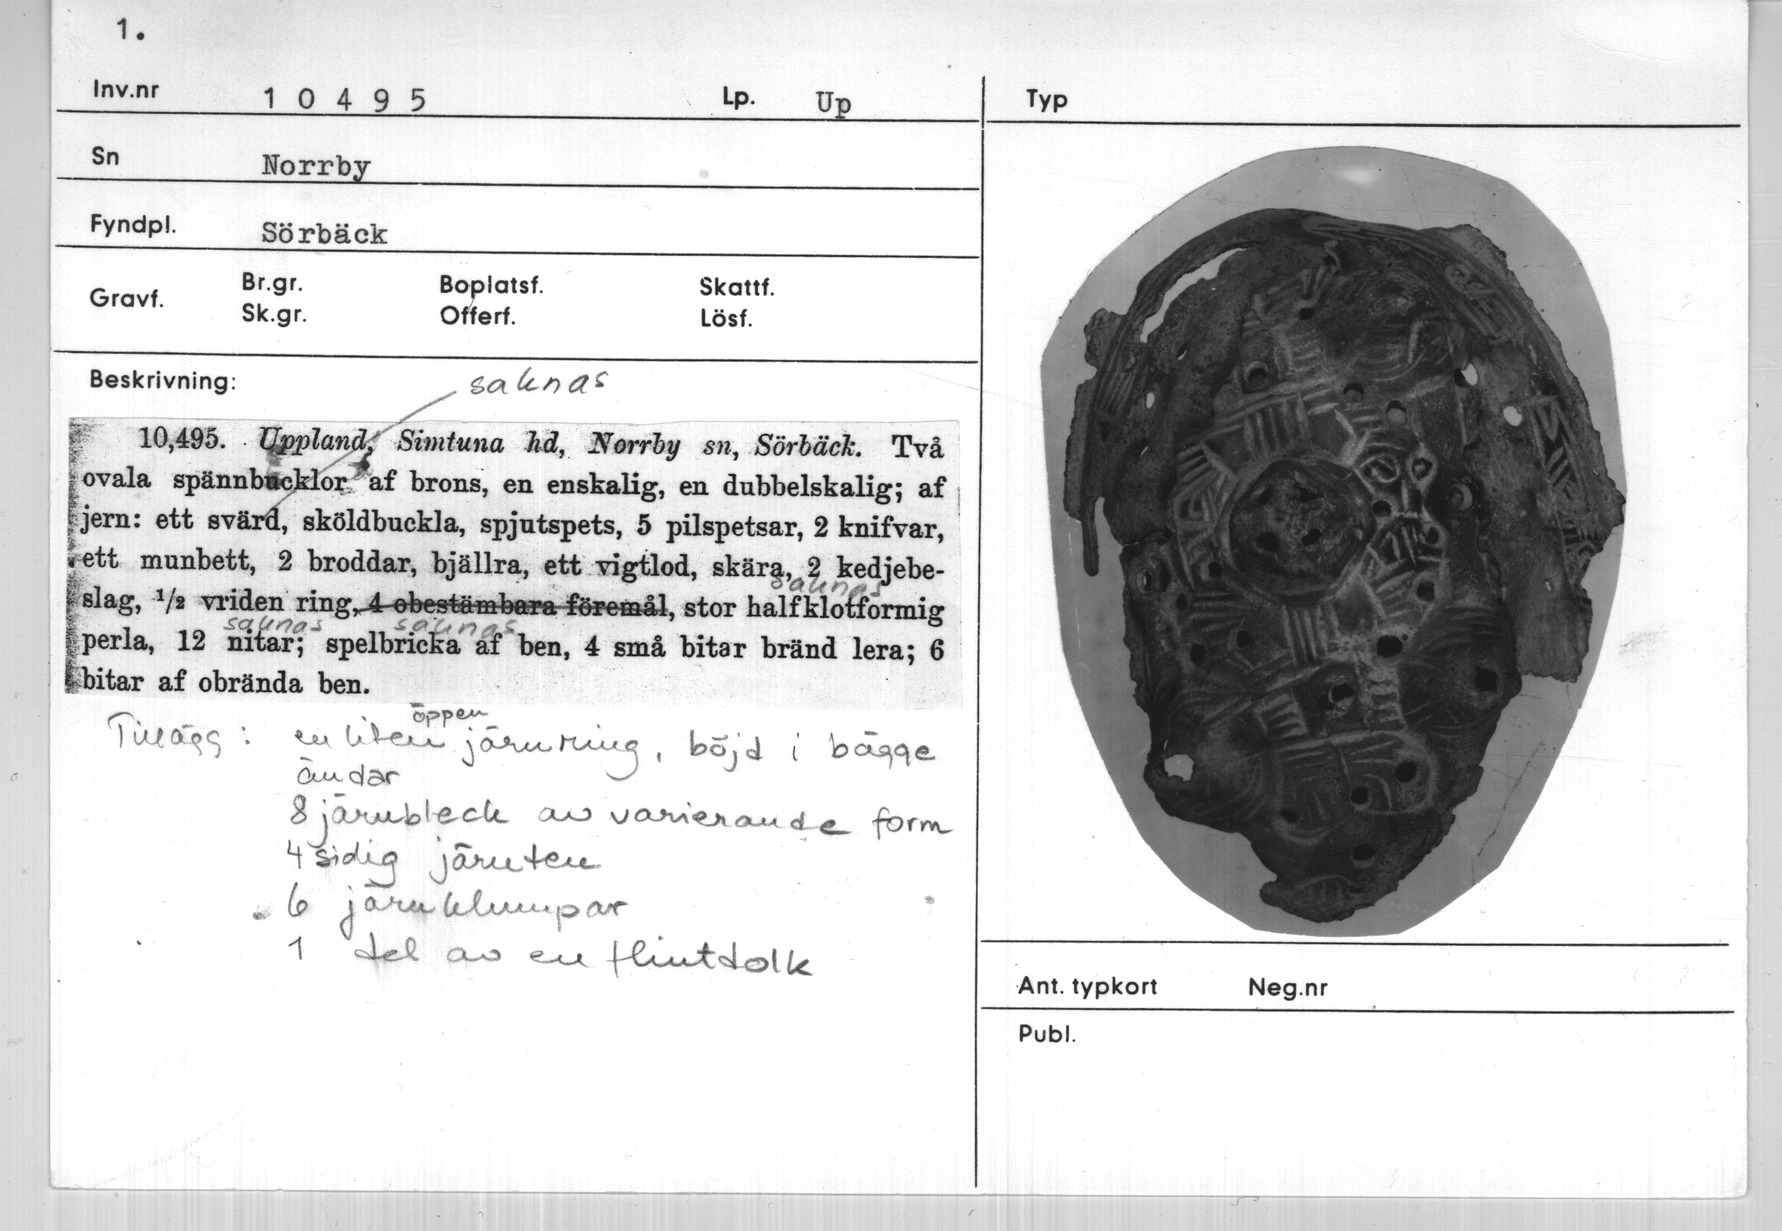 1.
Inv.nr 10495 Lp. Up
Sn Norrby
Fyndpl. Sörbäck
Gravf. Br.gr. Boplatsf. Skattf.
Sk.gr. Offerf. Lösf.
Beskrivning: saknas
10,495. Uppland, Simtuna hd, Norrby sn, Sörbäck. Två
ovala spännbucklor af brons, en enskalig, en dubbelskalig; af
jern: ett svärd, sköldbuckla, spjutspets, 5 pilspetsar, 2 knifvar,
ett munbett, 2 broddar, bjällra, ett vigtlod, skära, 2 kedjebe-
saknas
slag, 1/2 vriden ring, 4 obestämbara föremål, stor halfklotformig
saknas saknas
perla, 12 nitar; spelbricka af ben, 4 små bitar bränd lera; 6
bitar af obrända ben.
öppen
Tillägg: en liten järnring, böjd i bägge
ändar
8 järnbleck av varierande form
4 sidig järnten
6 järnklumpar
1 del av en flintdolk
Typ
Ant. typkort Neg.nr
Publ.